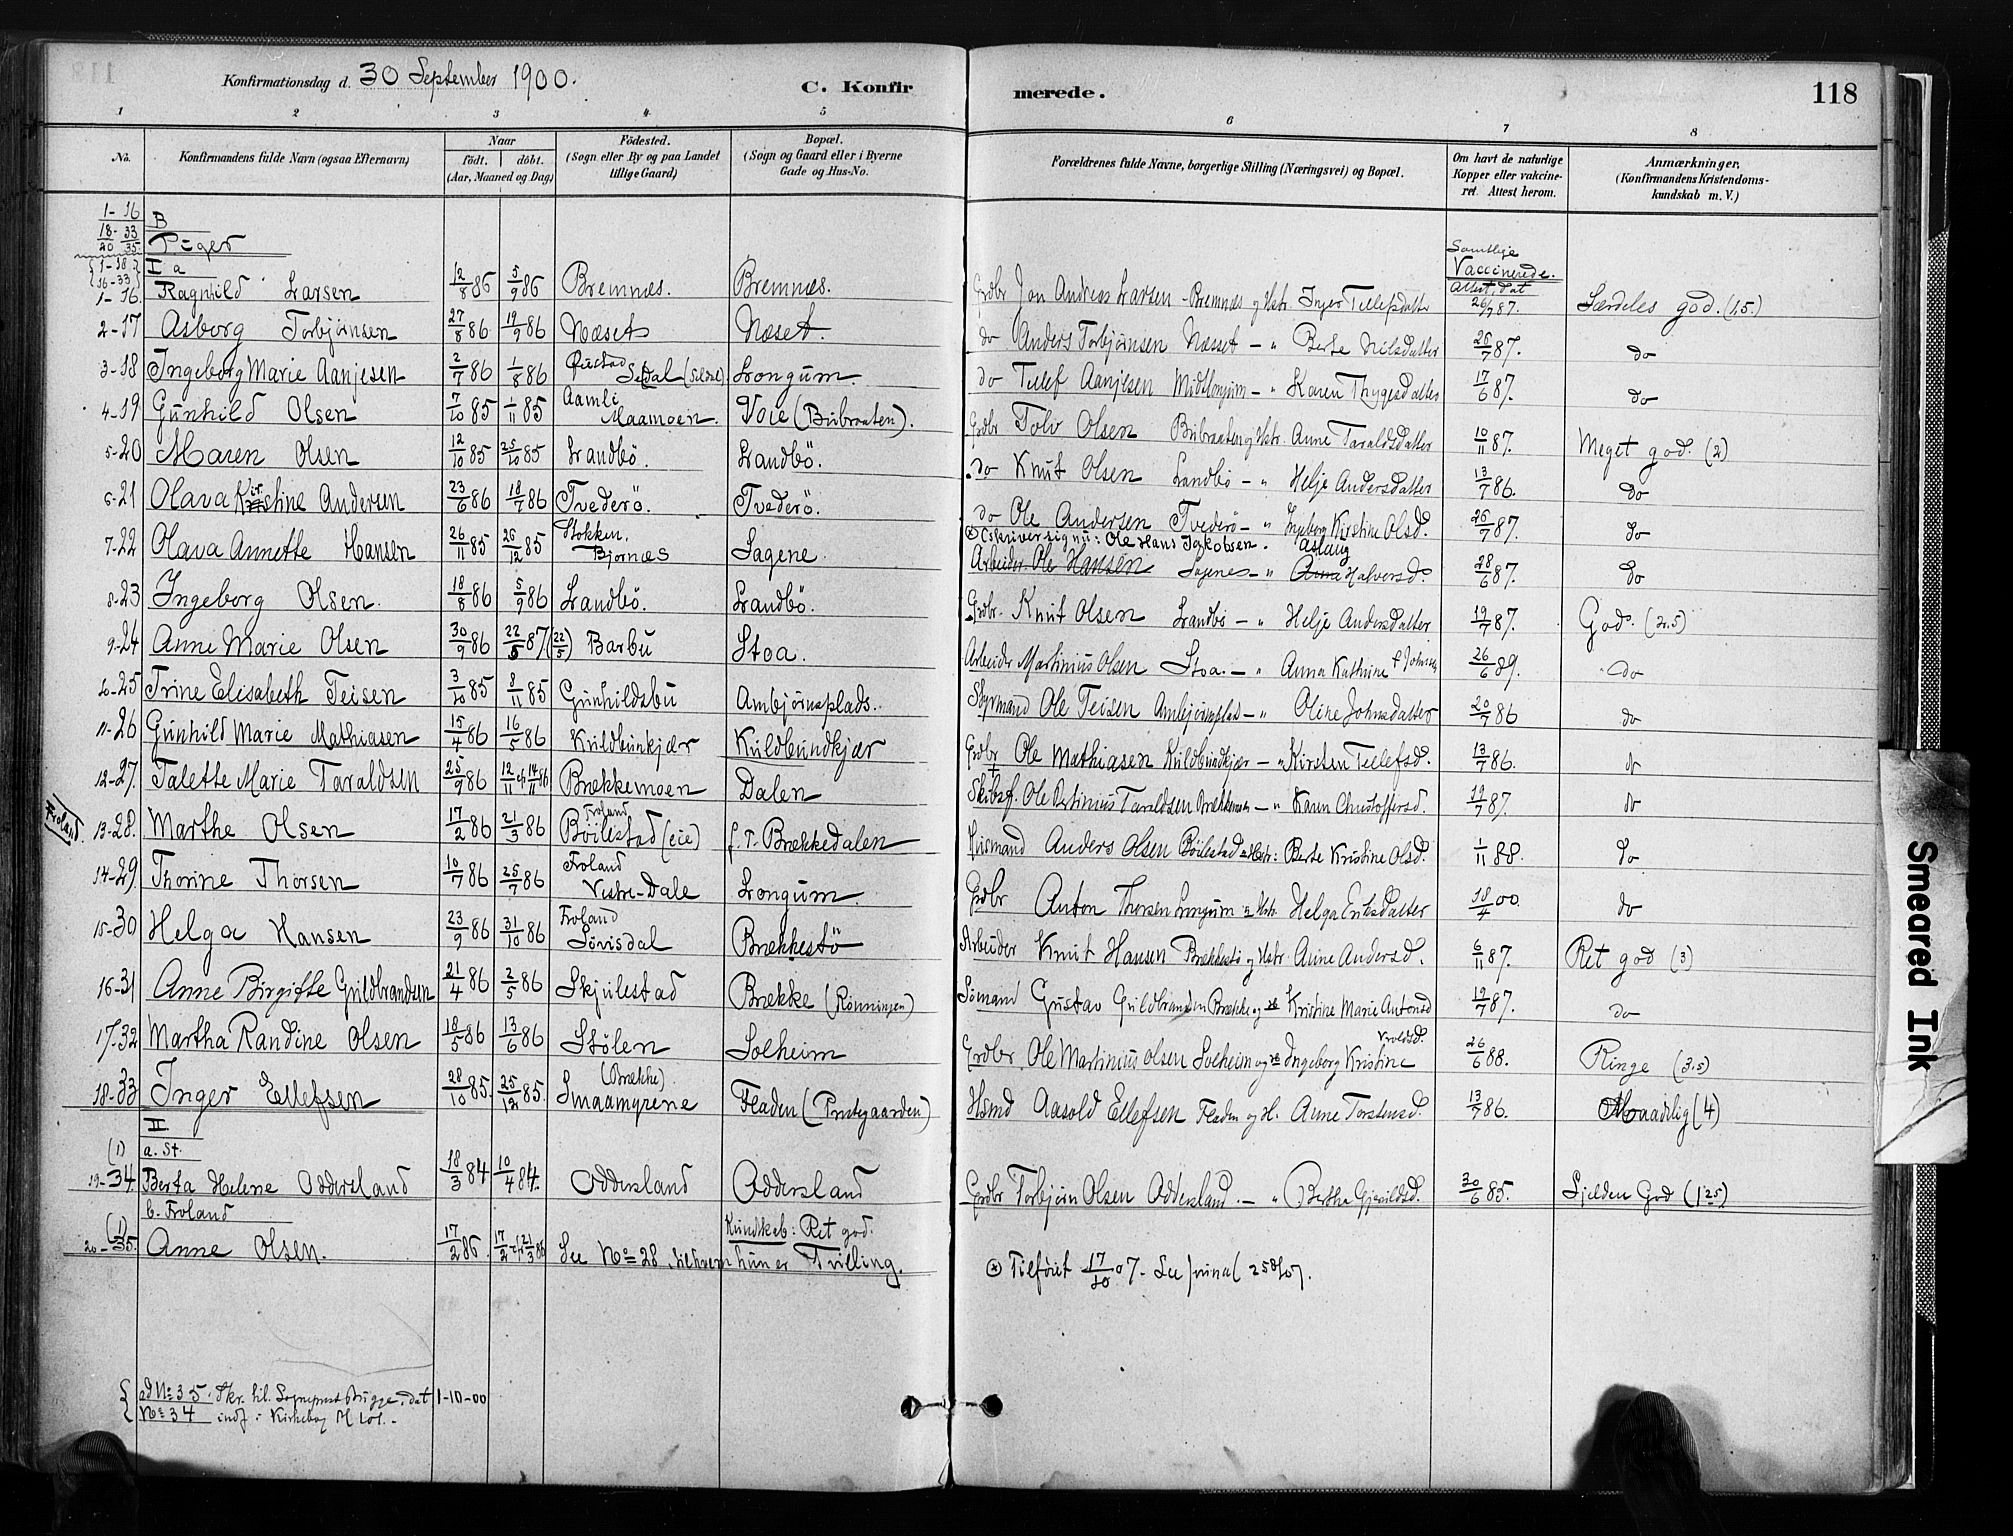 Konfirmationsdag d. 30 September 1900.
C. Konfirmerede.
118
1 2 3 4 5 6 7 8
No.
Konfirmandens fulde Navn (ogsaa Efternavn)
Naar
födt. döbt.
(Aar, Maaned og Dag)
Födested.
(Sogn eller By og paa Landet
tillige Gaard)
Bopæl.
(Sogn og Gaard eller i Byerne
Gade og Hus-No.
Forældrenes fulde Navne, borgerlige Stilling (Næringsvei) og Bopæl.
Om havt de naturlige
Kopper eller vakcine-
ret. Attest herom.
Anmærkninger.
(Konfirmandens Kristendoms-
kundskab m. V.)
1-16 B
18-33
20 35 Piger
1-18 I a
16-33
Samtlige
Vaccinerede.
Attest, dat
1-16. Ragnhild Larsen 12/8 86 5/9 86 Bremnæs. Bremnæs. Grdbr Jon Andreas Larsen - Bremnæs og Hstr. Inger Tellefsdatter 26/7 87. Særdeles god. (1,5.)
2-17 Asborg Torbjörnsen 27/8 86 19/9 86 Næset Næset. do Anders Torbjörnsen Næsset - " Berte Nilsdatter 26/7 87. do
3-18 Ingeborg Marie Aanjesen 2/7 86 1/8 86 Sedal Longum. do Tellef Aanjesen Midtlongum - " Karen Thygesdatter 17/6 87. do
4-19 Gunhild Olsen 7/10 85 1/11 85 Aamli Maamoen. Voie (Bubraaten). Grdbr Tolv Olsen Bubraaten og Hstr. Anne Taraldsdatter 10/11 87. Meget god. (2)
5-20 Maren Olsen 12/10 85 25/10 85 Landbö. Landbö. do Knut Olsen Landbö - " Helje Andersdatter 13/7 86. do
6-21 Olava Kirstine Andersen 23/6 86 18/7 86 Tvederö. Tvederö. do Ole Andersen Tvederö - " Ingeborg Kirstine Olsd. 26/7 87. do
Ole Hans Jakobsen. Aslaug
7-22 Olava Annette Hansen 26/11 85 26/12 85 Stokken, Bjornæs Sagene. Arbeider Ole Hansen Sagene - " Anna Halversd. 28/6 87. do
8-23 Ingeborg Olsen. 18/8 86 5/9 86 Landbö. Landbö. Grdbr. Knut Olsen Landbö - " Helje Andersdatter 19/7 87. God. (2.5)
9-24 Anne Marie Olsen 30/9 86 22/5 87 (22/5) Barbu Stoa. Arbeider Martinius Olsen Stoa. - " Anna Kathrine 26/6 89. do
10-25 Trine Elisabeth Teisen 3/10 85 8/11 85 Gunhildsbu Ambjörnsplads. Styrmand Ole Teisen Ambjörnsplds - " Oline Johnsdatter 20/7 86 do
11-26 Gunhild Marie Mathiasen 15/4 86 16/5 86 Kuldbunkjær Kuldbundkjær Grdbr Ole Mathiasen Kuldbundkjær - " Kirsten Tellefsd. 13/7 86. do
12-27. Talette Marie Taraldsen 25/9 86 12/11 14/11 86 Brækkemoen Dalen Skibsf. Ole Bertinius Taraldsen Brækkemoen - " Karen Christoffersd. 19/7 87. do
Froland. 13-28. Marthe Olsen 17/2 86 21/3 86 Froland Böilestad (eie) f. T. Brækkedalen Husmand Anders Olsen Böilestad og Hstr: Berte Kristine Olsd. 1/11 88. do
14-29. Thorine Thorsen 10/7 86 25/7 86 Froland Vestre-Dale Longum. Grdbr Anton Thorsen Longum og Hstr. Helga Eriksdatter 18/4 00. do
15-30 Helga Hansen 23/9 86 31/10 86 Froland Lövisdal Brækkestö Arbeider Knut Hansen Brækkestö og Hstr. Anne Andersd. 6/11 87. Ret god (3)
16-31 Anne Birgitte Guldbrandsen 21/4 86 2/5 86 Skjulestad Brække (Rönningen) Sömand Gustav Guldbrandsen Brække og Kristine Marie Antonsd 19/7 87. do
17-32 Martha Randine Olsen 18/5 86 13/6 86 Stölen Solheim Grdbr Ole Martinius Olsen Solheim og Ingeborg Kristine 26/6 88. Ringe (3.5)
18-33 Inger Ellefsen 28/10 85. 25/12 85. (Brække). Smaamyrene Fladen (Prestegaarden) Hsmd Aasold Ellefsen Fladen og H. Anne Torstensd. 13/7 86. Maadelig (4)
II
(1) a. St.
19-34. Berta Helene Oddersland 18/3 84 10/4 84. Oddersland Oddersland Grdbr Torbjörn Olsen Oddersland. - " Bertha Gjeruldsd. 30/6 85. Sjelden God (1.25)
b. Froland
Kundskab: Ret god.
(1) 20-35. Anne Olsen. 17/2 86. 17/2 21/3 86 Se No 28 til hvem hun er Tvilling.
Tilföiet 17/10 07. Se Journal 258/07.
ad No 35. Skr. til Sogneprest Bugge, dat 1-10-00
No 34 indf. i Kirkebog
Smeared Ink